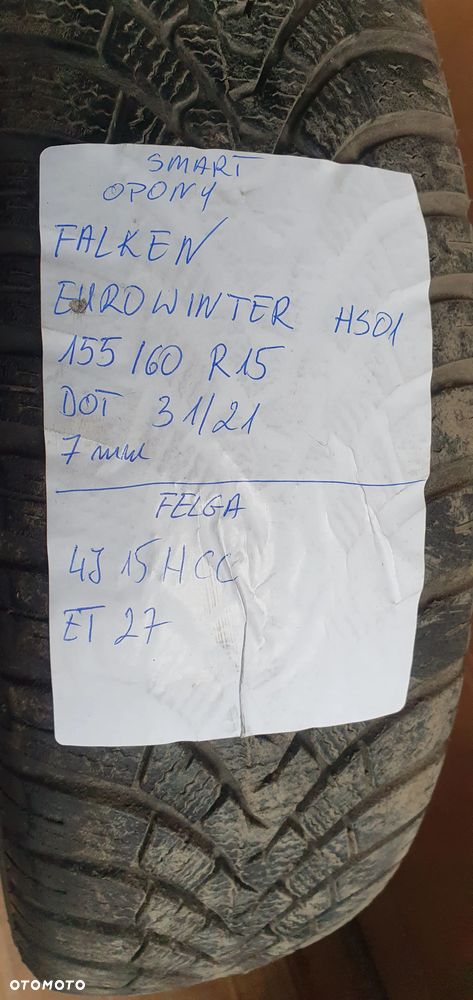 SMART
OPONY
FALKEN
EUROWINTER HS01
155/60 R15
DOT 31/21
7 mm
FELGA
4J 15 H CC
ET 27
OTOMOTO